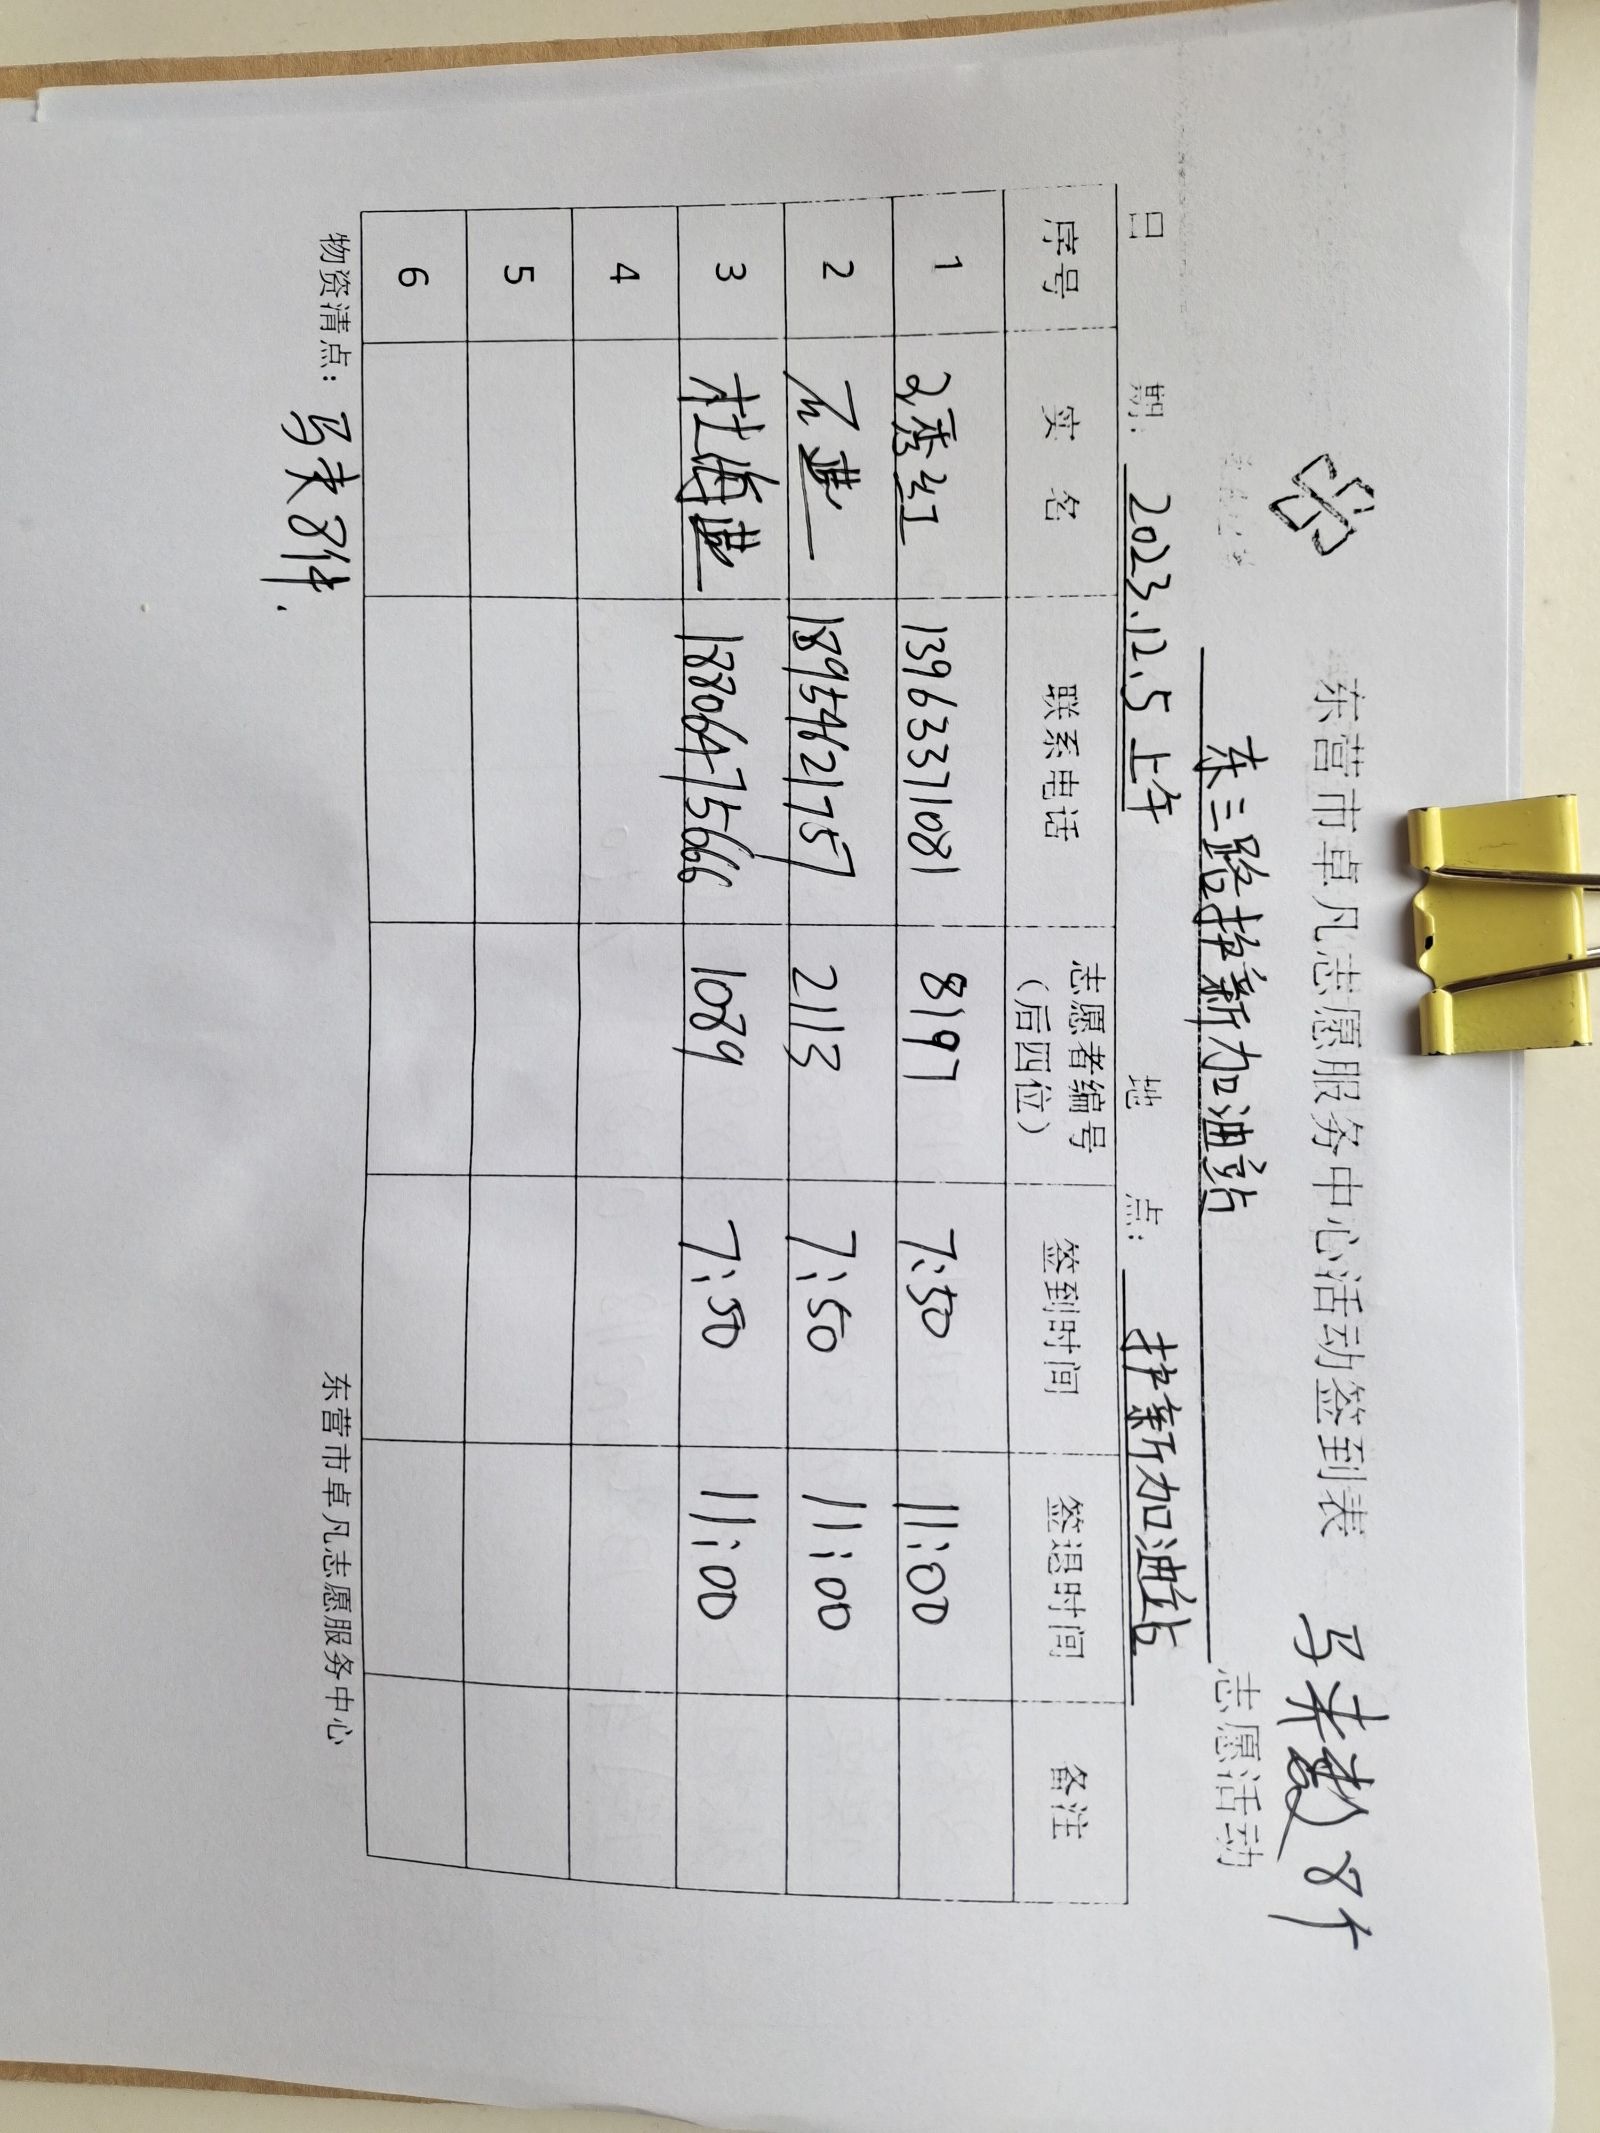 东营市卓凡志愿服务中心活动签到表 马夹数8个
东三路护新加油站 志愿活动
日 期: 2023.12.5 上午 地 点: 护新加油站
序号 实 名 联系电话 志愿者编号（后四位） 签到时间 签退时间 备注
1 秀红 13963371081 8197 7:50 11:00
2 石燕 18954621757 2113 7:50 11:00
3 杜海燕 18806475666 1089 7:50 11:00
4
5
6
物资清点: 马夹8件. 东营市卓凡志愿服务中心